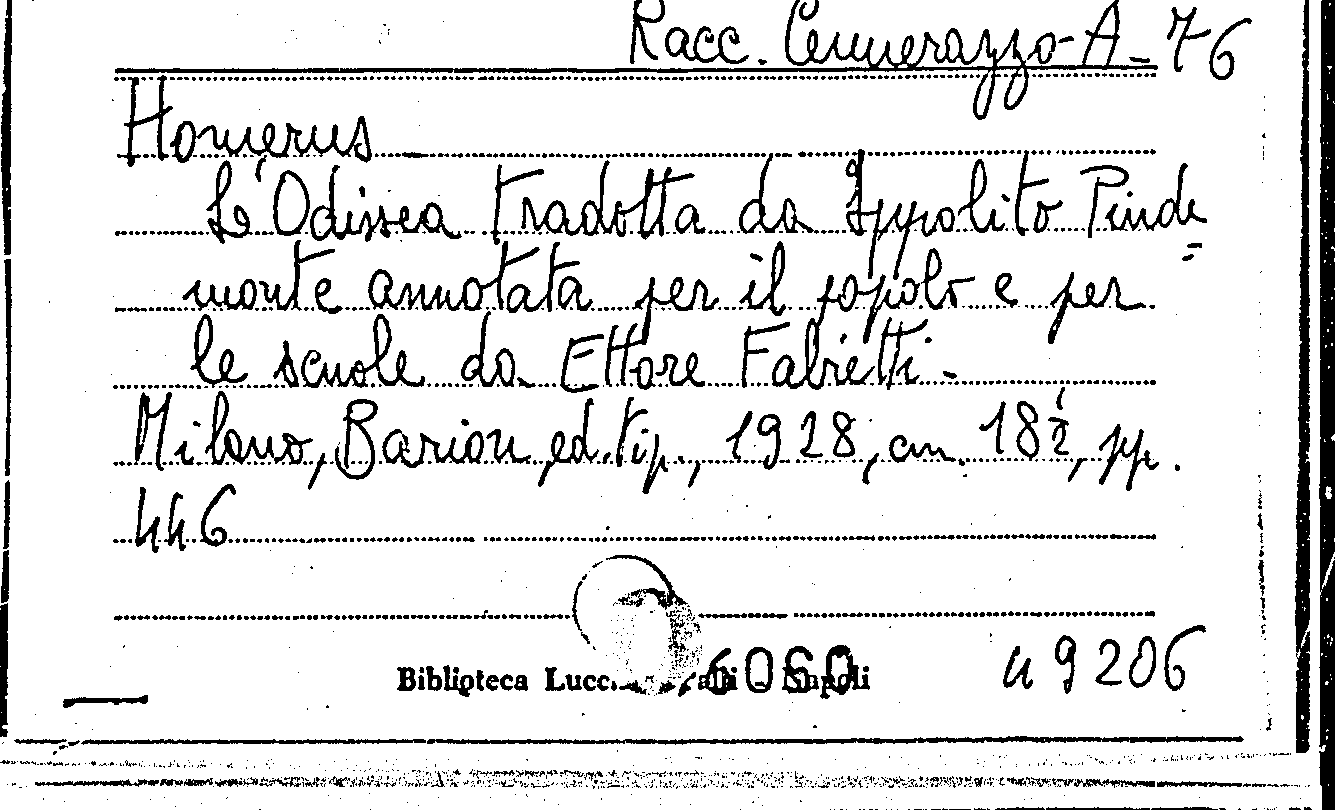 Racc. Cennerazzo-A-76
Homerus
L'Odissea tradotta da Ippolito Pinde
=
monte annotata per il popolo e per
le scuole da Ettore Fabietti-
Milano, Barion, ed. tip., 1928, cm. 18½, pp.
446
Biblioteca 6060 Napoli
49206